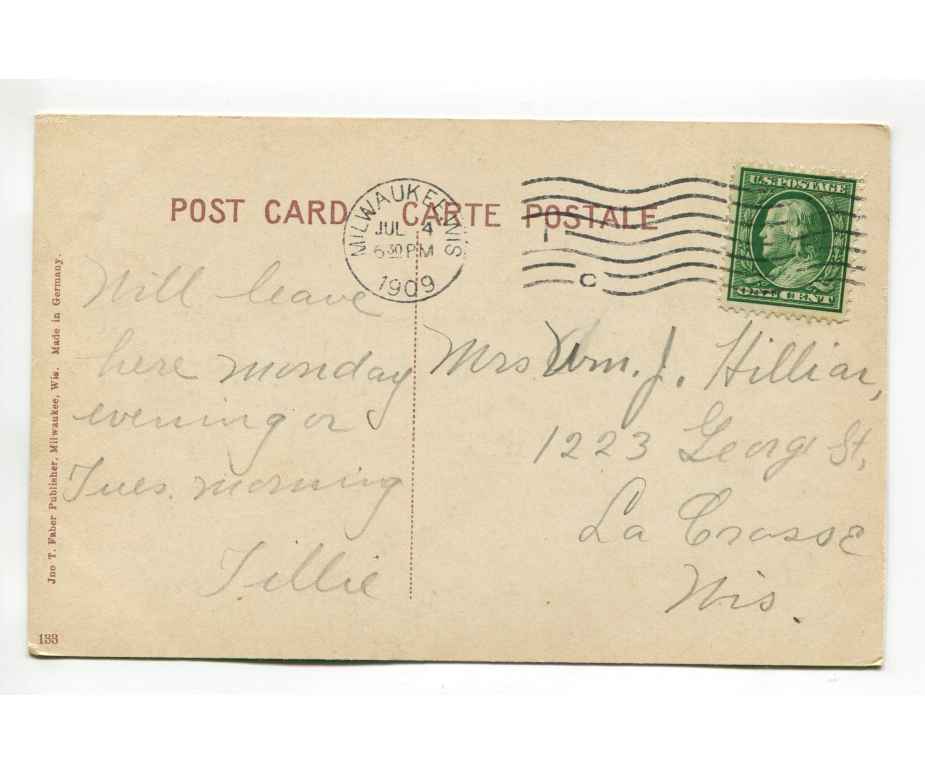 POST CARD CARTE POSTALE
MILWAUKEE, WIS.
JUL 4
630 PM
1909
C
U.S. POSTAGE
ONE CENT
Will leave
here monday
evening or
Tues. morning
Tillie
Mrs Wm. J. Hilliar,
1223 George St,
La Crosse
Wis.
Jno T. Faber Publisher, Milwaukee, Wis. Made in Germany.
133